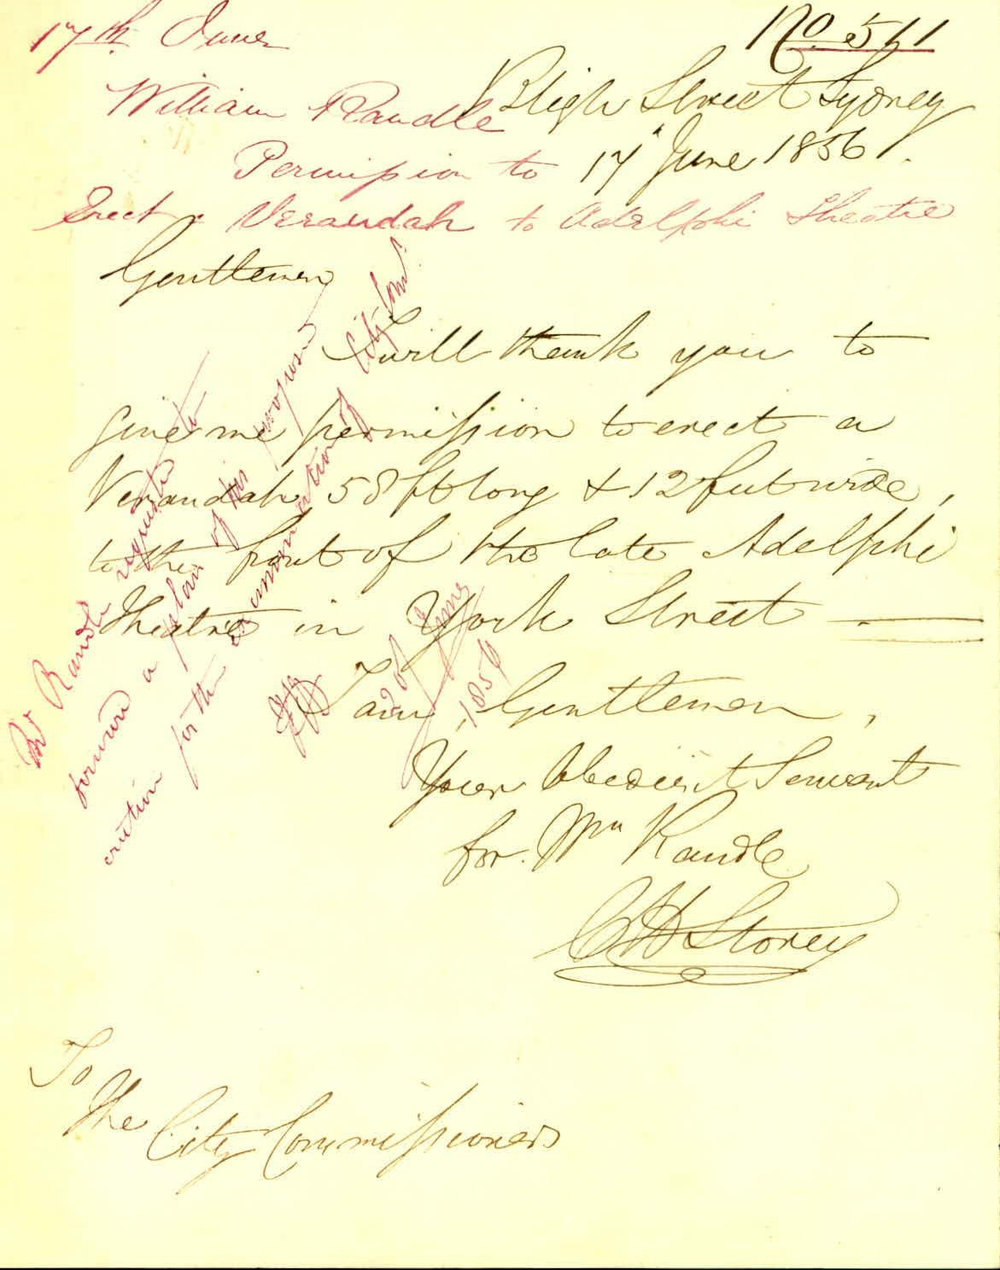 17th June
No 511
William Randle
Bligh Street Sydney
Permission to
17 June 1856.
Erect a Verandah to Adelphi Theatre
Gentlemen
I will thank you to
give me permission to erect a
Verandah 58 ft long & 12 feet wide,
to the front of the late Adelphi
Theatre in York Street
I am, Gentlemen,
Your Obedient Servant
for Wm Randle
C H Storey
To
The City Commissioners
Mr Randle requested to
forward a plan of his proposed
erection for the examination of City Comrs
20 June
1856